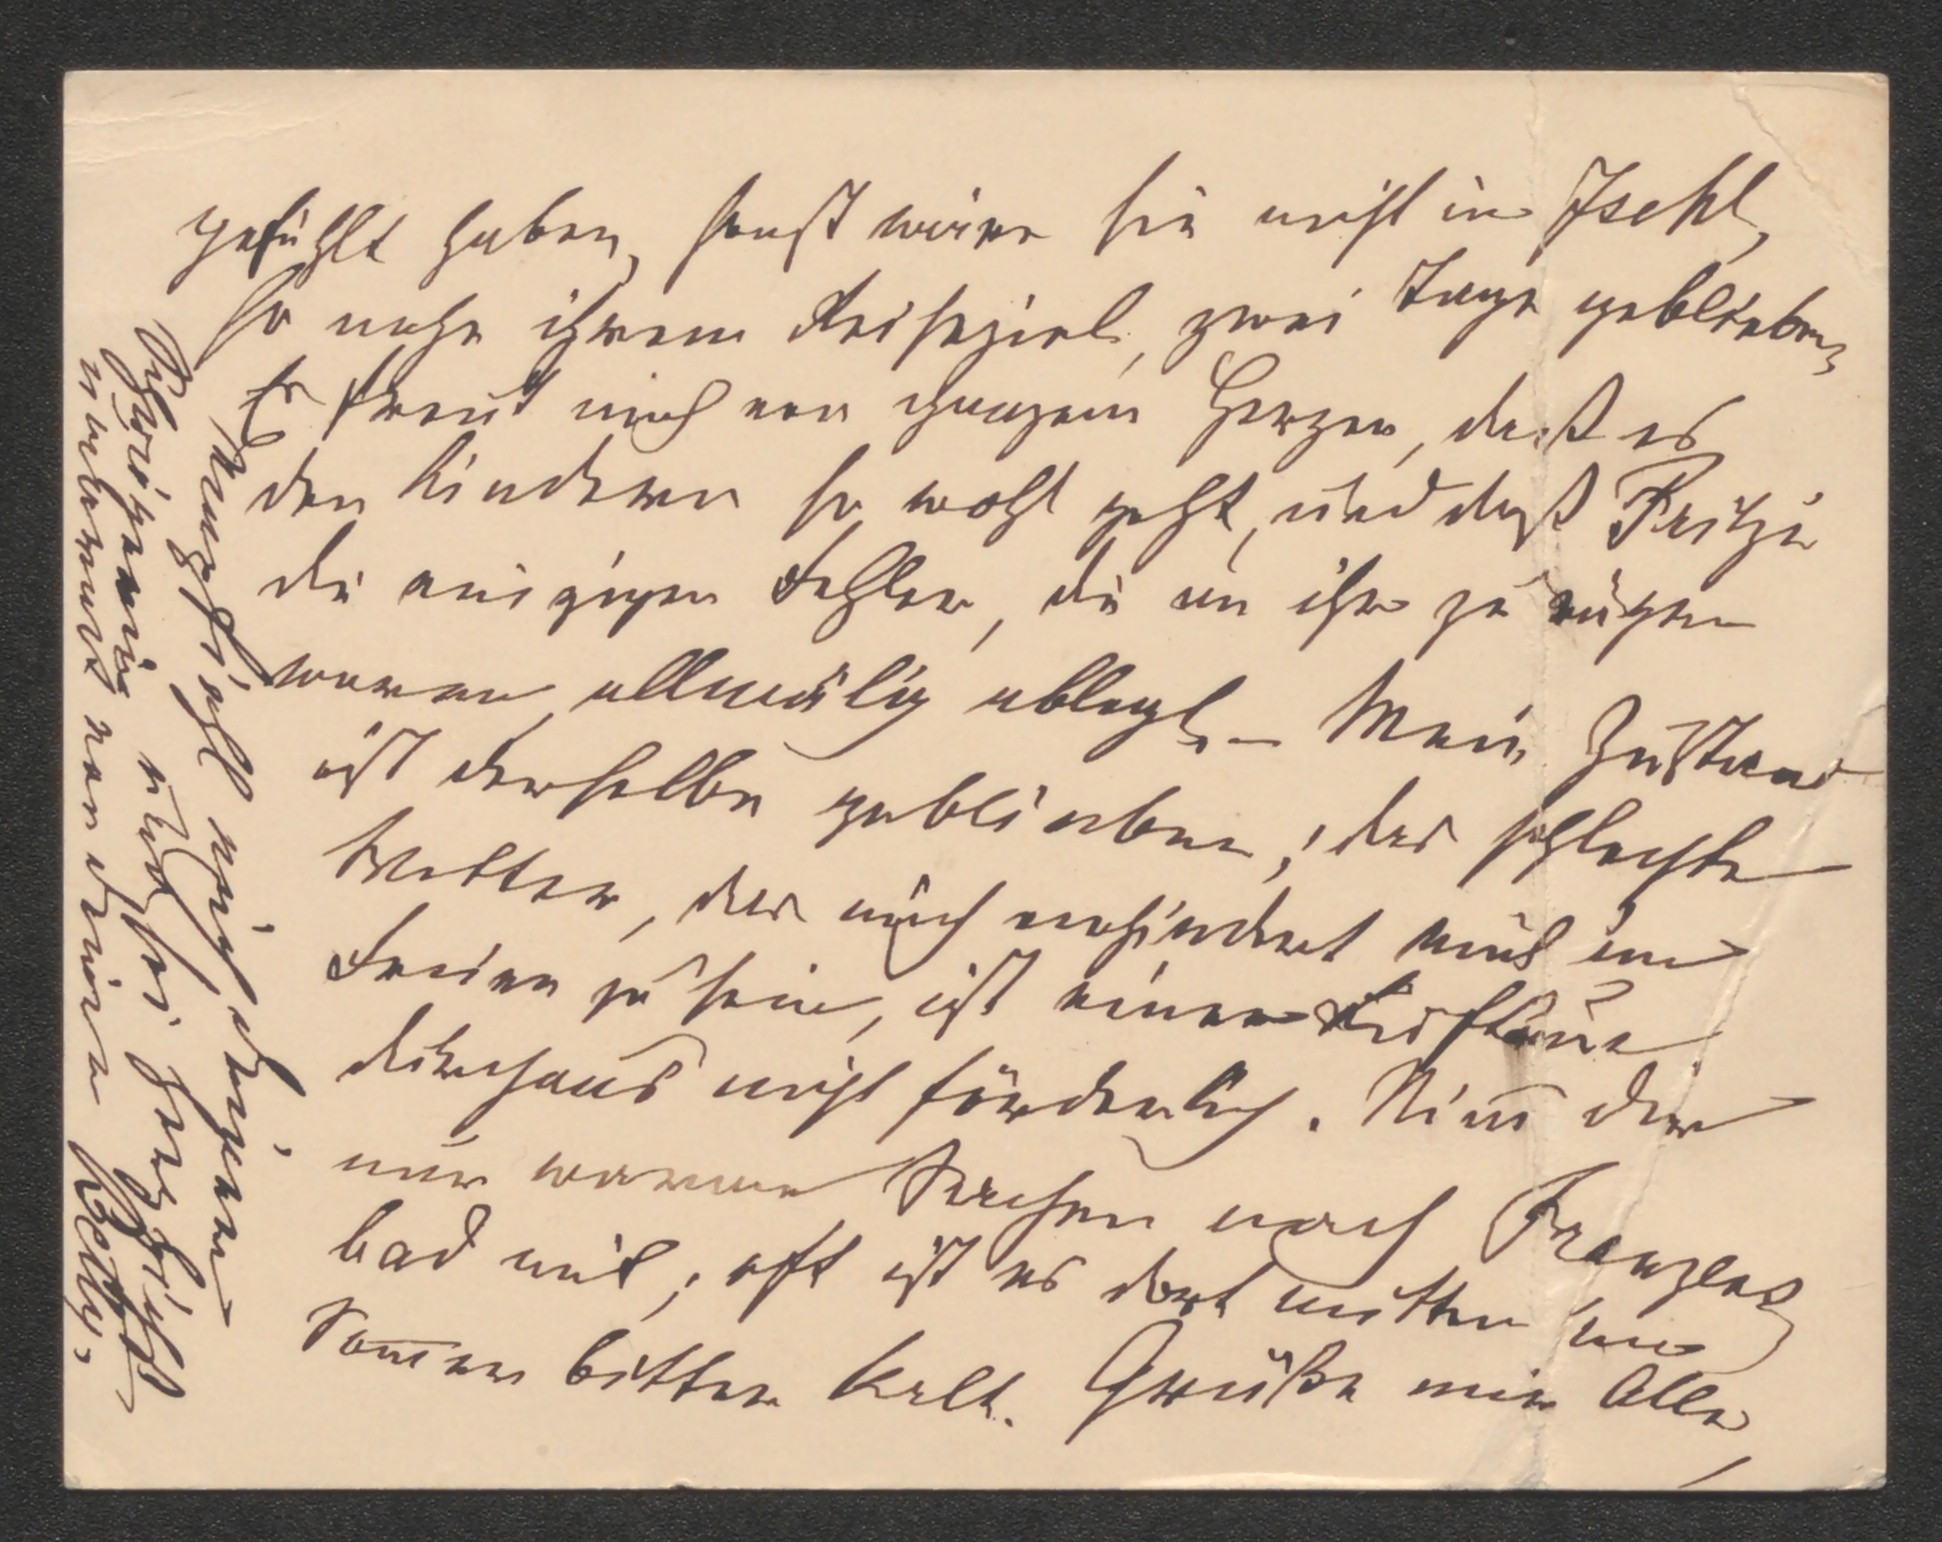 gefühlt haben, sonst wäre sie nicht in Ischl,
so nahe ihrem Reiseziel, zwei Tage geblieben,
Es freut mich von ganzem Herzen, daß es
den Kindern so wohl geht, und daß Fritzi
die einzigen Fehler, die an ihr zu rügen
waren, allmälig ablegt. – Mein Zustand
ist derselbe geblieben; das schlechte
Wetter, das mich verhindert viel im
Freien zu sein, ist einer
durchaus nicht förderlich. Nim̄ dir
nur warme Sachen nach Franzens
bad mit; oft ist es dort mitten im
Som̄er bitter kalt. Grüße mir Alle,
empfiehl mich deinen
Schwägerin und sei herzlichst
umarmt von deiner Betty.